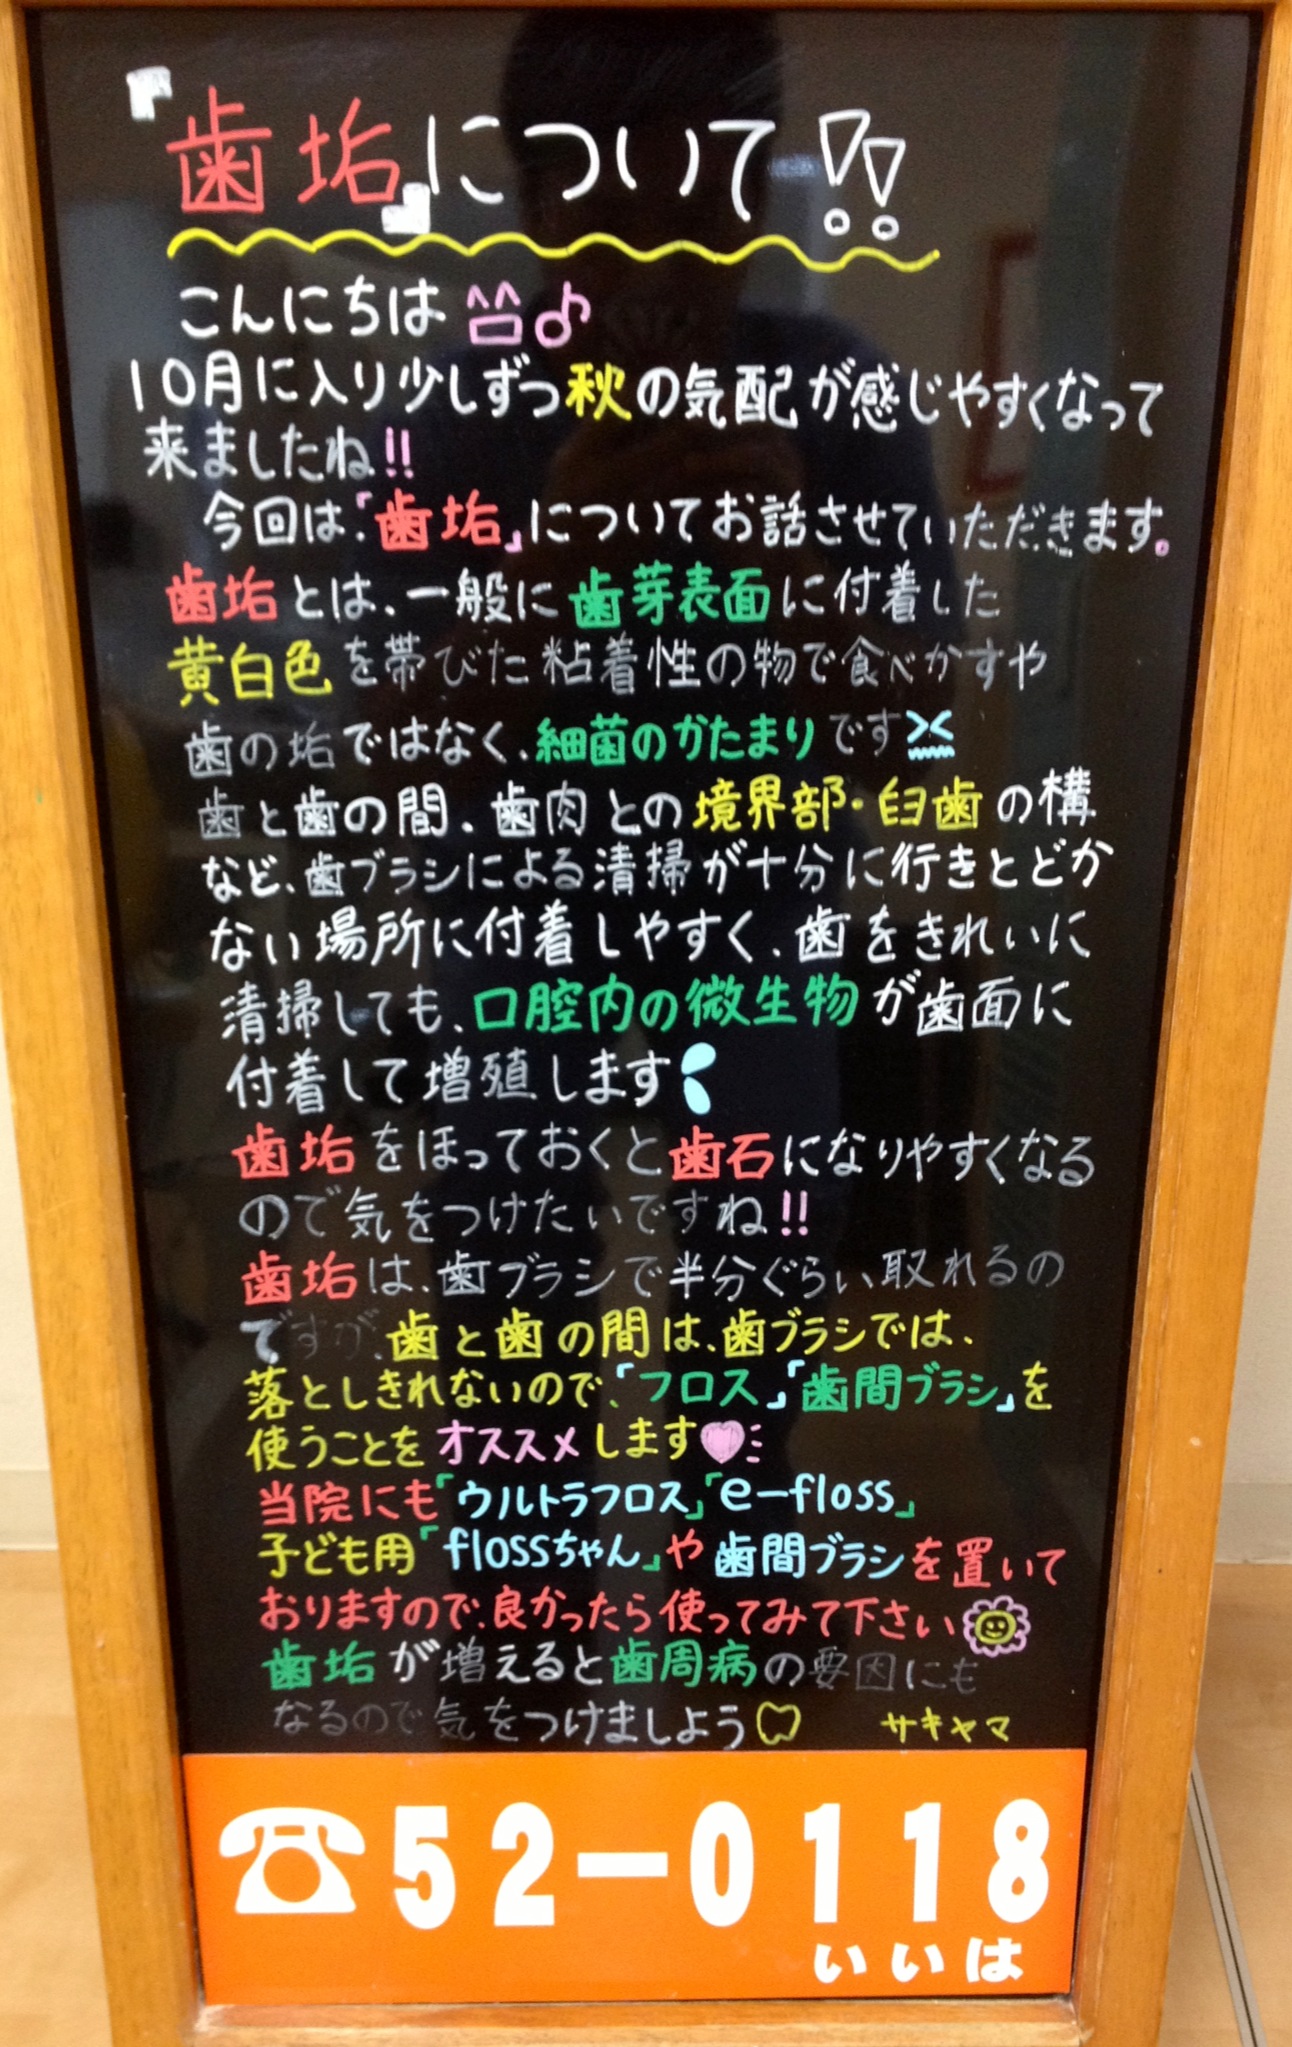 『歯垢』について!!
こんにちは♪
10月に入り少しずつ秋の気配が感じやすくなって
来ましたね!!
今回は、「歯垢」についてお話させていただきます。
歯垢とは、一般に歯芽表面に付着した
黄白色を帯びた粘着性の物で食べかすや
歯の垢ではなく、細菌のかたまりです
歯と歯の間、歯肉との境界部・臼歯の構
など、歯ブラシによる清掃が十分に行きとどか
ない場所に付着しやすく、歯をきれいに
清掃しても、口腔内の微生物が歯面に
付着して増殖します
歯垢をほっておくと歯石になりやすくなる
ので気をつけたいですね!!
歯垢は、歯ブラシで半分ぐらい取れるの
ですが、歯と歯の間は、歯ブラシでは、
落としきれないので、「フロス」「歯間ブラシ」を
使うことをオススメします
当院にも「ウルトラフロス」「e-floss」
子ども用「flossちゃん」や歯間ブラシを置いて
おりますので、良かったら使ってみて下さい
歯垢が増えると歯周病の要因にも
なるので気をつけましょう サキヤマ
☎52-0118
いいは